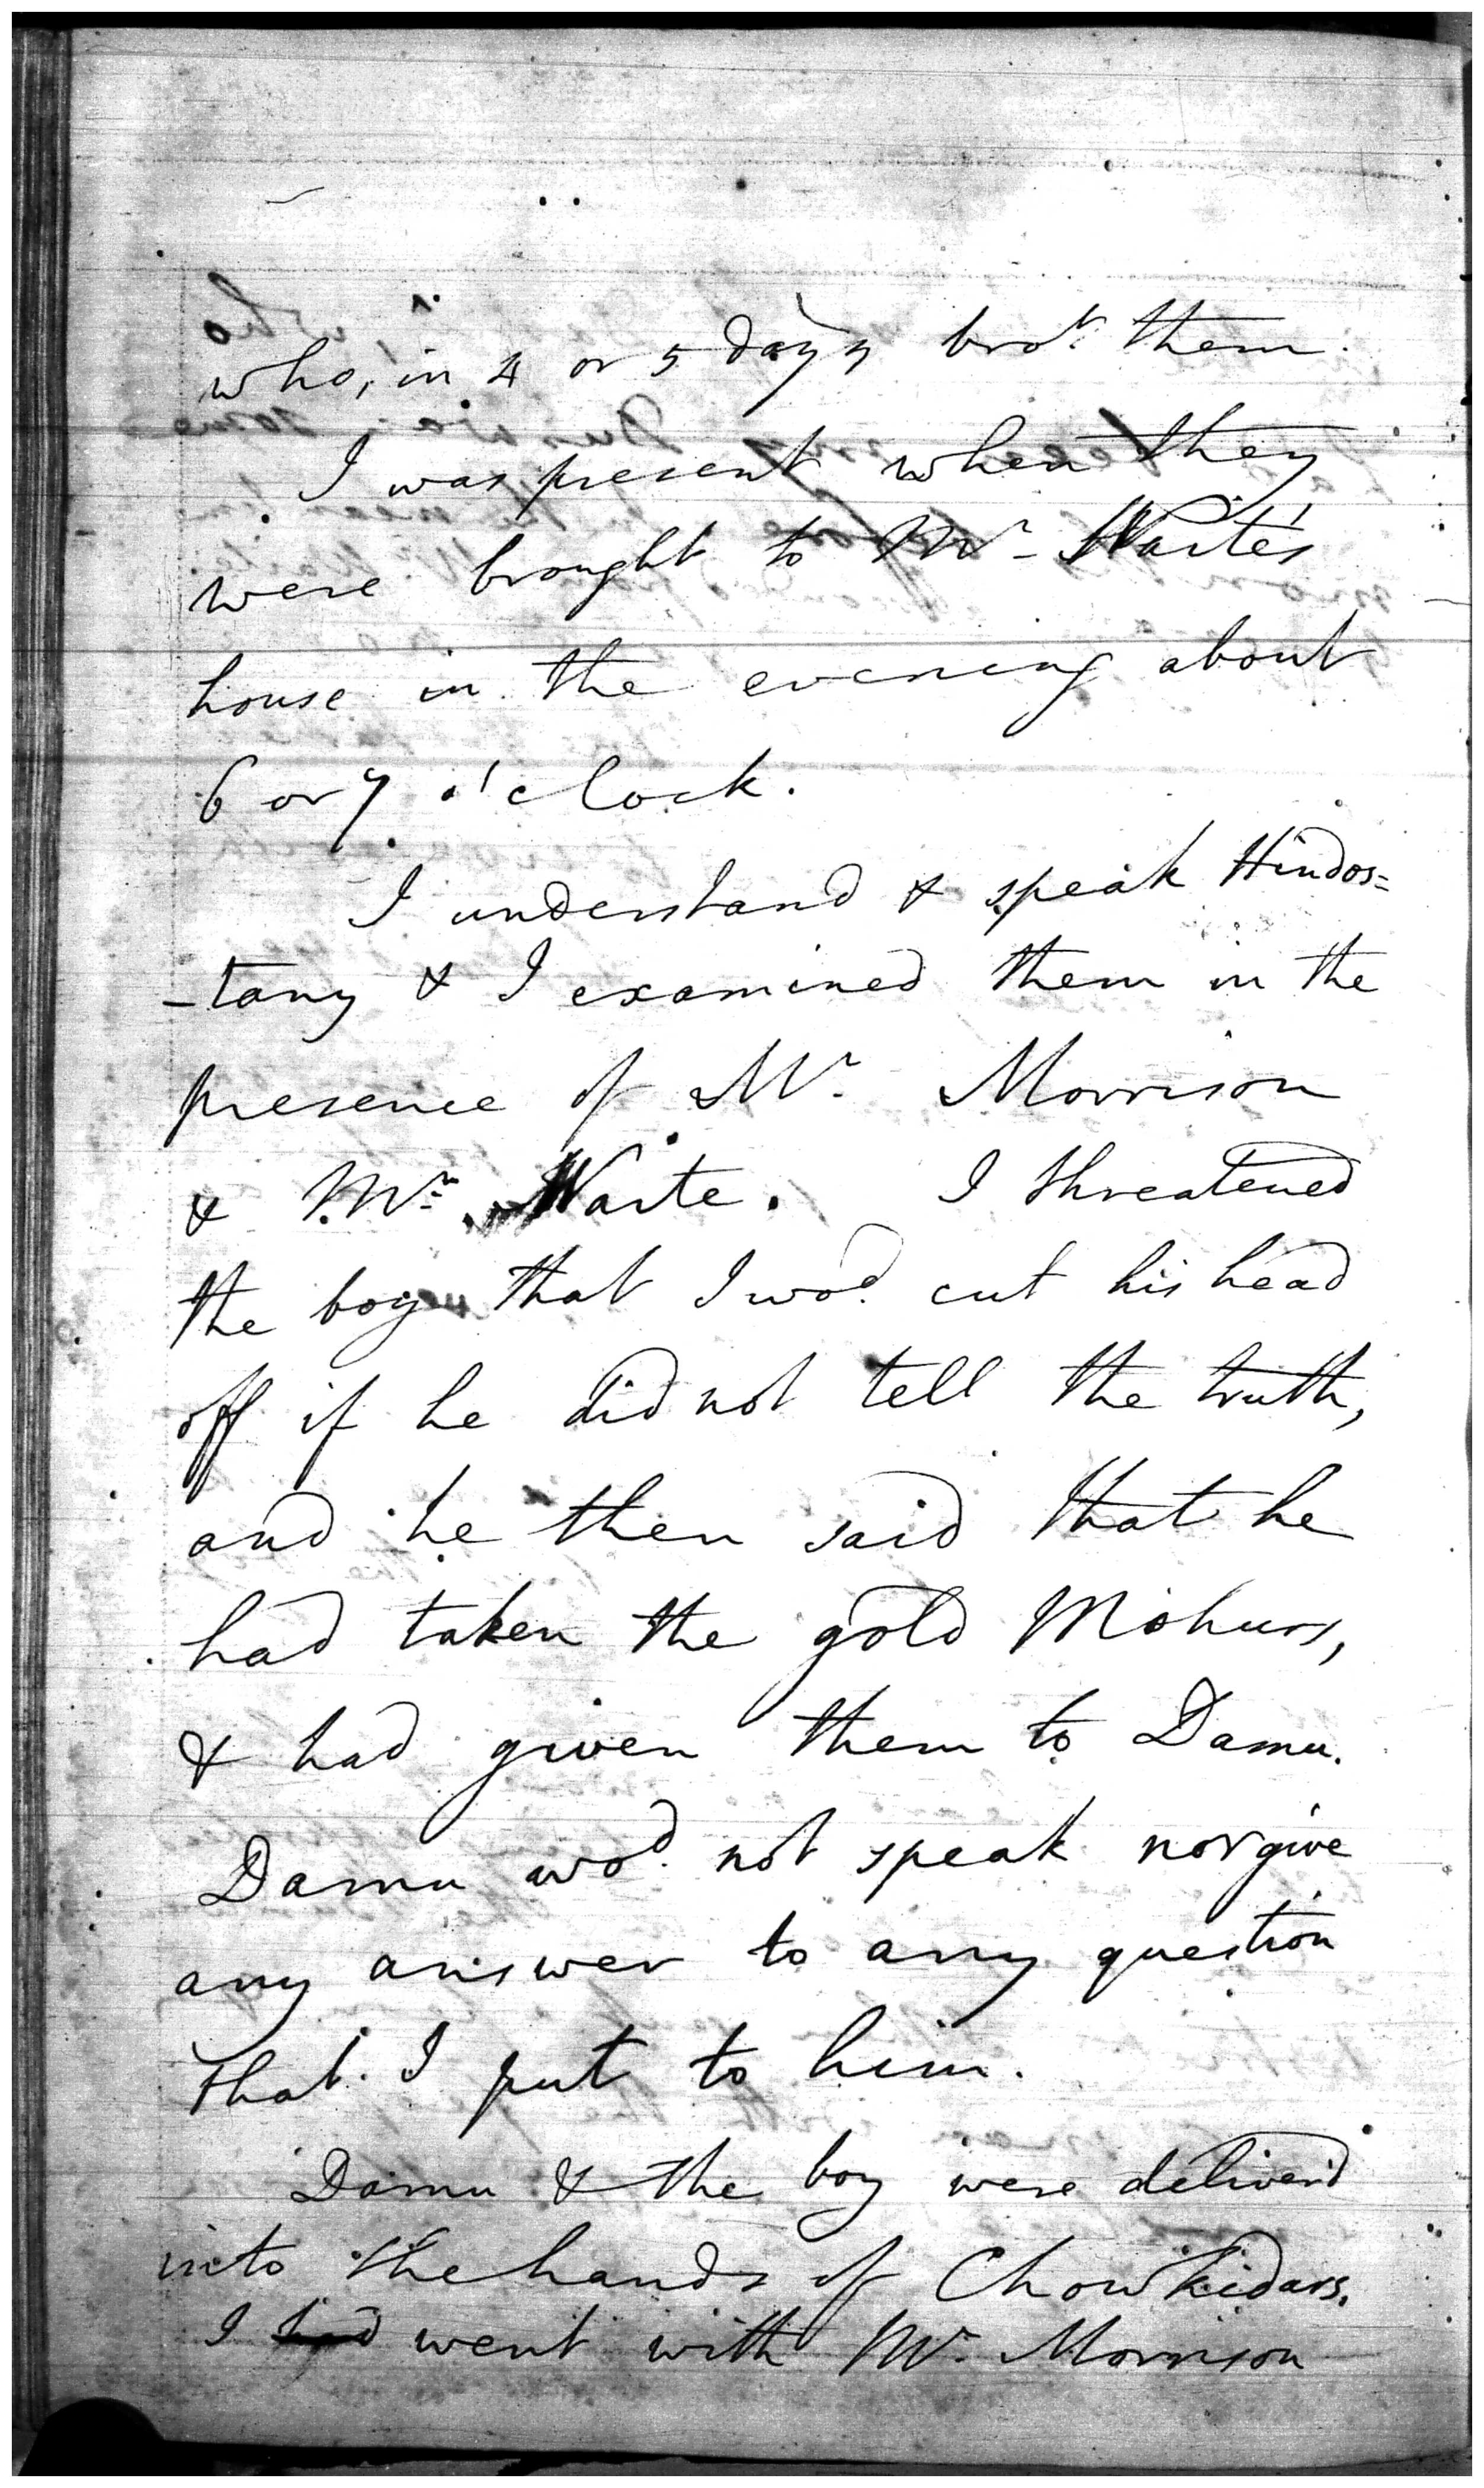 who, in 4 or 5 days bro.t them.
I was present when they
were brought to Mr. Waite's
house in the evening about
6 or 7 o'clock.
I understand & speak Hindos=
-tany & I examined them in the
presence of Mr. Morrison
& Mr. Waite. I threatened
the boy that I wo.d cut his head
off if he did not tell the truth,
and he then said that he
had taken the gold Mohurs,
& had given them to Damu.
Damu wo.d not speak nor give
any answer to any question
that I put to him.
Damu & the boy were deliver'd
into the hands of Chowkidars.
I had went with Mr. Morrison